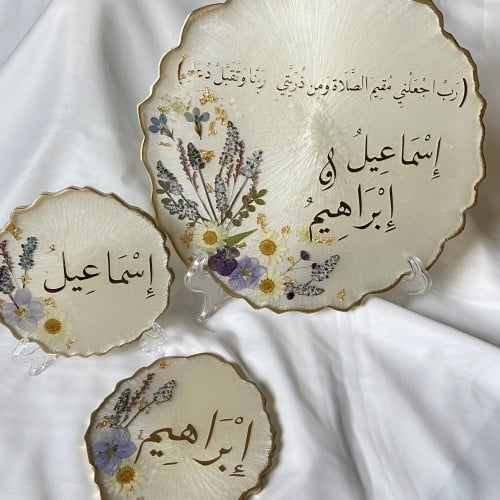 (رَبِّ اجْعَلْنِي مُقِيمَ الصَّلَاةِ وَمِن ذُرِّيَّتِي رَبَّنَا وَتَقَبَّلْ دُعَاءِ)
إِسْمَاعِيلُ
و
إِبْرَاهِيمُ
إِسْمَاعِيلُ
إِبْرَاهِيمُ